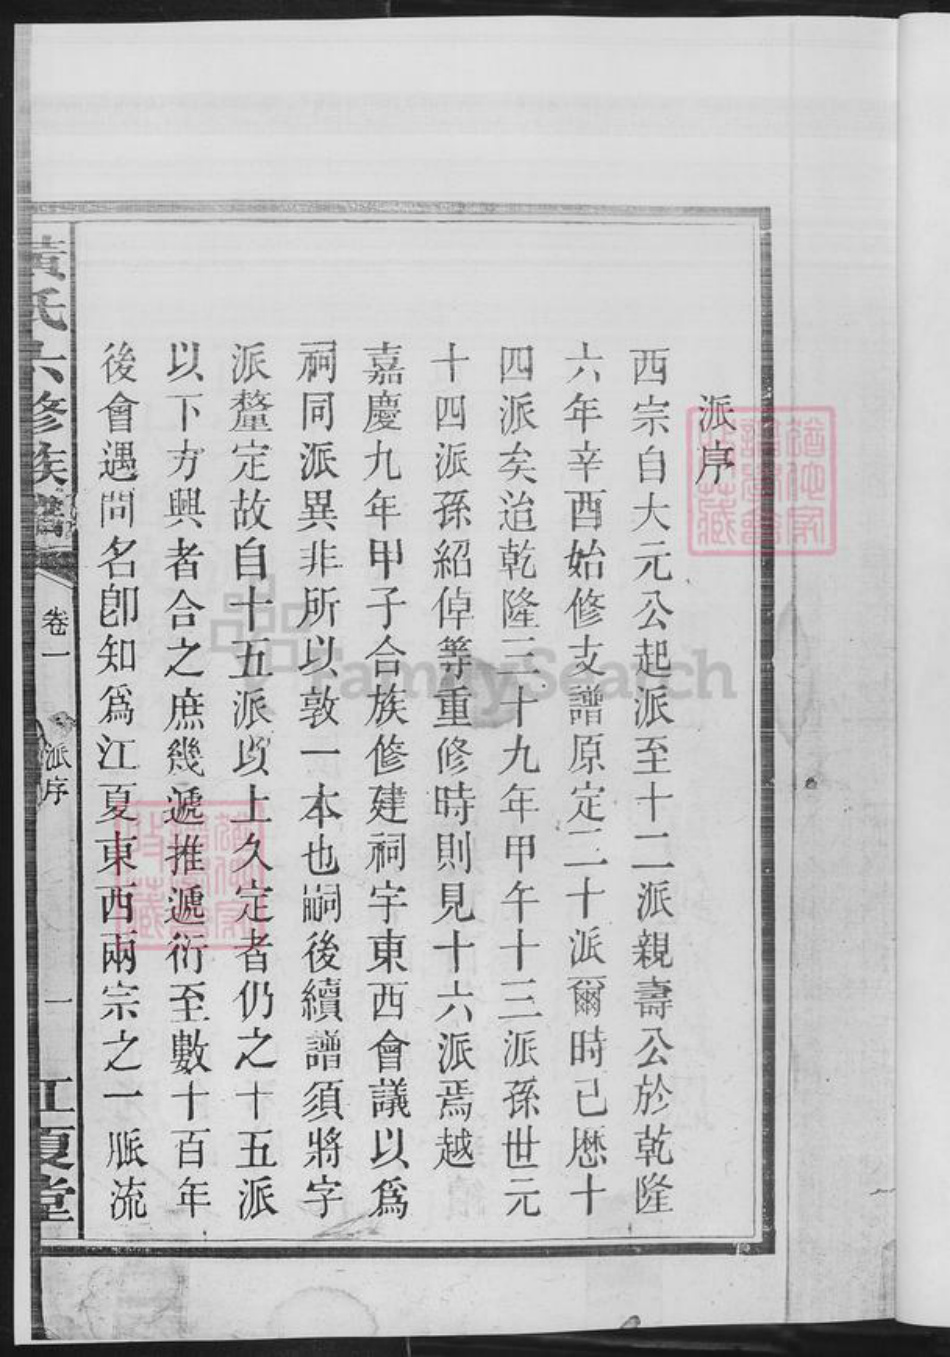 派序
西宗自大元公起派至十二派親壽公於乾隆
六年辛酉始修支譜原定二十派爾時已歷十
四派矣迨乾隆三十九年甲午十三派孫世元
十四派孫紹倬等重修時則見十六派焉越
嘉慶九年甲子合族修建祠宇東西會議以為
祠同派異非所以敦一本也嗣後續譜須將字
派釐定故自十五派以上久定者仍之十五派
以下方興者合之庶幾遞推遞衍至數十百年
後會遇問名卽知為江夏東西兩宗之一脈流
黃氏六修族譜
卷一
派序
一
江夏堂
FamilySearch